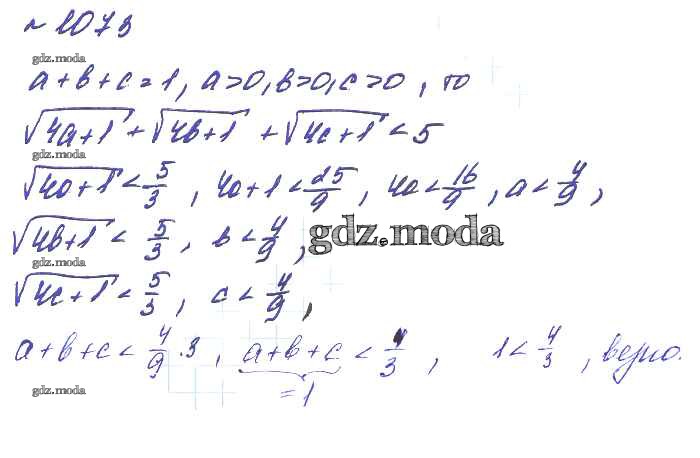 № 1073
gdz.moda
a+b+c=1, a>0, b>0, c>0, то
√4a+1 + √4b+1 + √4c+1 < 5
gdz.moda
√4a+1 < 5/3, 4a+1 < 25/9, 4a < 16/9, a < 4/9,
gdz.moda
√4b+1 < 5/3, b < 4/9,
gdz.moda
gdz.moda
√4c+1 < 5/3, c < 4/9,
gdz.moda
a+b+c < 4/9 · 3, a+b+c < 4/3, 1 < 4/3, верно.
=1
gdz.moda